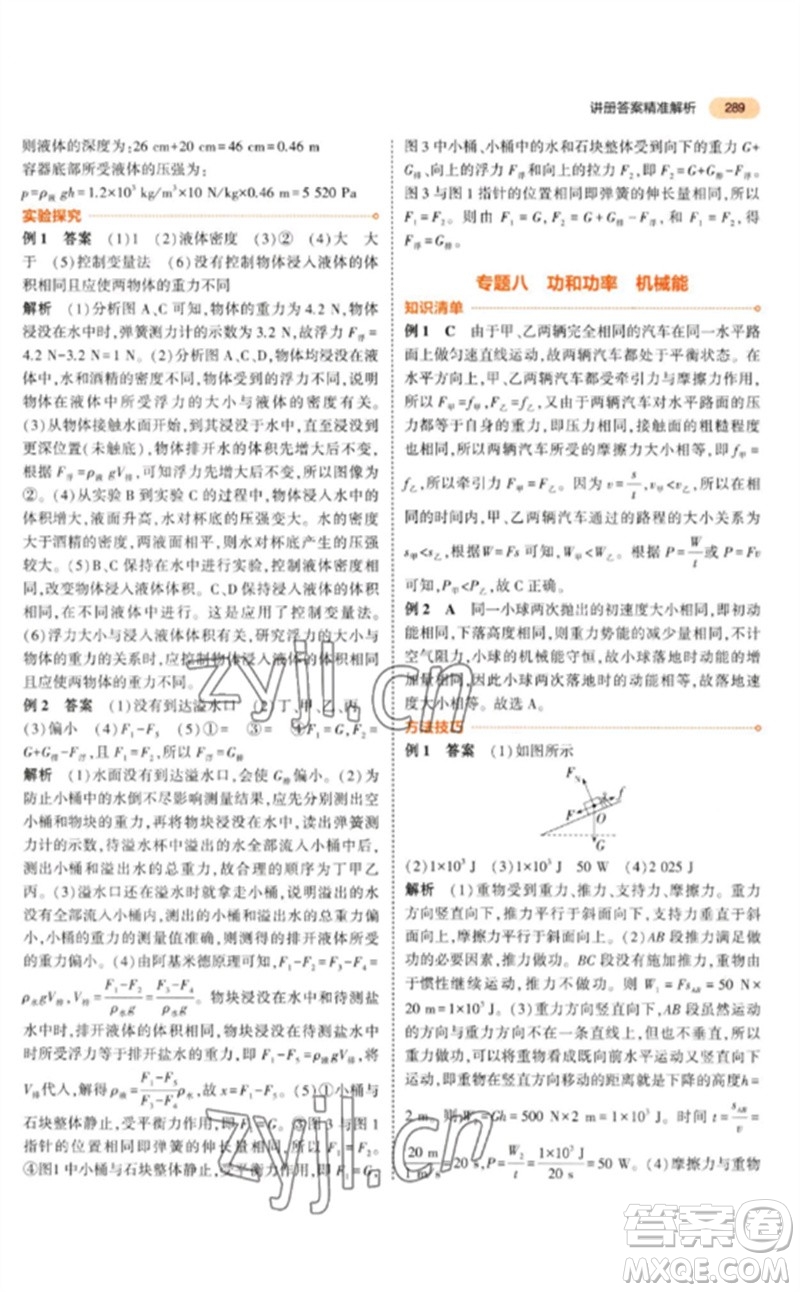 讲册答案精准解析 289
则液体的深度为:26 cm+20 cm=46 cm=0.46 m
容器底部所受液体的压强为:
p=ρ液gh=1.2×10³ kg/m³×10 N/kg×0.46 m=5 520 Pa
实验探究
例1 答案 (1)1 (2)液体密度 (3)② (4)大 大
于 (5)控制变量法 (6)没有控制物体浸入液体的体
积相同且应使两物体的重力不同
解析 (1)分析图 A、C 可知,物体的重力为 4.2 N,物体
浸没在水中时,弹簧测力计的示数为 3.2 N,故浮力 F浮=
4.2 N-3.2 N=1 N。(2)分析图 C、D,物体均浸没在液
体中,水和酒精的密度不同,受到的浮力不同,说明
物体在液体中所受浮力的大小与液体的密度有关。
(3)从物体接触水面开始,到其浸没于水中后下降到
更深位置(未触底),物体排开水的体积先增大后不变,
根据 F浮=ρ液gV排,可知浮力先增大后不变,所以图像为
②。(4)从实验 B 到实验 C 的过程中,物体浸入水中的
体积增大,液面升高,水对杯底的压强变大。水的密度
大于酒精的密度,两液面相平,则水对杯底产生的压强
较大。(5)B、C 保持液体密度相同,控制液体密度相
同,改变物体浸入液体体积。C、D 保持浸入液体体积相
同,改变液体密度。这是应用了控制变量法。
(6)浮力大小与浸入液体体积有关,研究浮力的大小与
物体的重力的关系时,应控制物体浸入液体的体积相同
且使两物体的重力不同。
例2 答案 (1)没有到达溢水口 (2)丁、甲、乙、丙
(3)偏小 (4)F₁-F₅ (5)①= ②= ③F₁=G,F₂=
G+G排-F浮,且 F₁=F₂,所以 F浮=G排
解析 (1)水面没有到达溢水口,会使 G排偏小。(2)为
防止小桶中的水倒不尽影响测量结果,应先分别测出空
小桶和物块的重力,再将物块浸没在水中,读出弹簧测
力计的示数,待溢水杯中的水全部流入小桶中后,
测出小桶和溢出水的总重力,故合理的顺序为丁甲乙
丙。(3)溢水口还在溢水,说明物块排开的液体没有
全部流入小桶内,测出的小桶和溢出水的总重力偏
小,小桶的重力测量值准确,则测得的排开液体所受
的重力偏小。(4)由阿基米德原理可知,F₁-F₂=
ρ水gV排,V排=(F₁-F₂)/(ρ水g)=(F₄-F₃)/(ρ水g)。物块浸没在水中和在待测盐
水中时,排开液体的体积相同,物块浸没在待测盐水中时
所受浮力等于排开盐水的重力,即 F₁-F₅=ρ液gV排,将
V排代入,解得 ρ液=(F₁-F₅)/(F₄-F₃)ρ水,故 x=F₁-F₅。(5)①小桶与
石块整体静止,受平衡力作用,即 F₁=G。③图 3 与图 1
指针的位置相同即弹簧的伸长量相同,即 F₁=F₂。
④图1 中小桶与石块整体静止,受平衡力作用,即 F₁=G,
图 3 中小桶、小桶中的水和石块整体受到向下的重力 G+
G排、向上的浮力 F浮和向上的拉力 F₂,即 F₂=G+G排-F浮。
图 3 与图 1 指针的位置相同即弹簧的伸长量相同,即
F₁=F₂。则由 F₁=G,F₂=G+G排-F浮和 F₁=F₂,得
F浮=G排。
专题八 功和功率 机械能
知识清单
例1 C 由于甲、乙两辆完全相同的汽车在同一水平路
面上做匀速直线运动,故两辆汽车都处于平衡状态。在
水平方向上,甲、乙两辆汽车都受牵引力与摩擦力作用,
所以 F甲=f甲,F乙=f乙。又由于两辆汽车对水平路面的压
力都等于自身的重力,即压力相同,接触面的粗糙程度
也相同,所以两辆汽车所受的摩擦力大小相等,即 f甲=
f乙,所以牵引力 F甲=F乙。因为 v=s/t,v甲<v乙,所以在相
同的时间内,甲、乙两辆汽车通过的路程的大小关系为
s甲<s乙,根据W=Fs 可知,W甲<W乙。根据 P=W/t或 P=Fv
可知,P甲<P乙,故 C 正确。
例2 A 同一小球两次抛出的初速度大小相同,即初动
能相同,下落高度相同,即重力势能的减少量相同,不计
空气阻力,小球的机械能守恒,故小球落地时动能的增
加量相同,因此小球两次落地时的动能相等。故选 A。
方法技巧
例1 答案 (1)如图所示
F_N
f
F
O
G
(2)1×10³ J (3)1×10³ J 50 W (4)2 025 J
解析 (1)重物受到重力、推力、支持力、摩擦力。重力
方向竖直向下,推力平行于斜面向下,支持力垂直于斜
面向上,摩擦力平行于斜面向上。(2)AB 段推力满足做
功的两个必要因素。BC 段没有施加推力,重物
由于惯性继续运动,推力不做功。则 W₁=Fs_AB=50 N×
20 m=1×10³ J。(3)重力方向竖直向下,AB 段虽然运动
的方向与重力方向不在一条直线上,但也不垂直,所以
重力做功,可以将重物的运动分解为向前水平运动又竖直向
下运动,重物在竖直方向移动的距离就是下降的高度h=
2 m,则 W₂=Gh=500 N×2 m=1×10³ J,时间 t=s_AB/v=
20 m/1 m/s=20 s,P=W₂/t=1×10³ J/20 s=50 W。(4)摩擦力与重物
zyjl.cn
zyjl.cn
答案圈